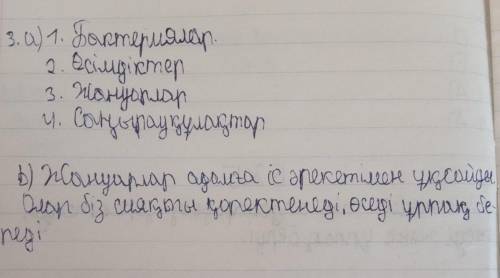 3. а) 1. Бактериялар.
2. Өсімдіктер
3. Жануарлар
4. Саңырауқұлақтар
b) Жануарлар адамға іс әрекетімен ұқсайды
Олар біз сияқты қоректенеді, өседі ұрпақ бе-
реді